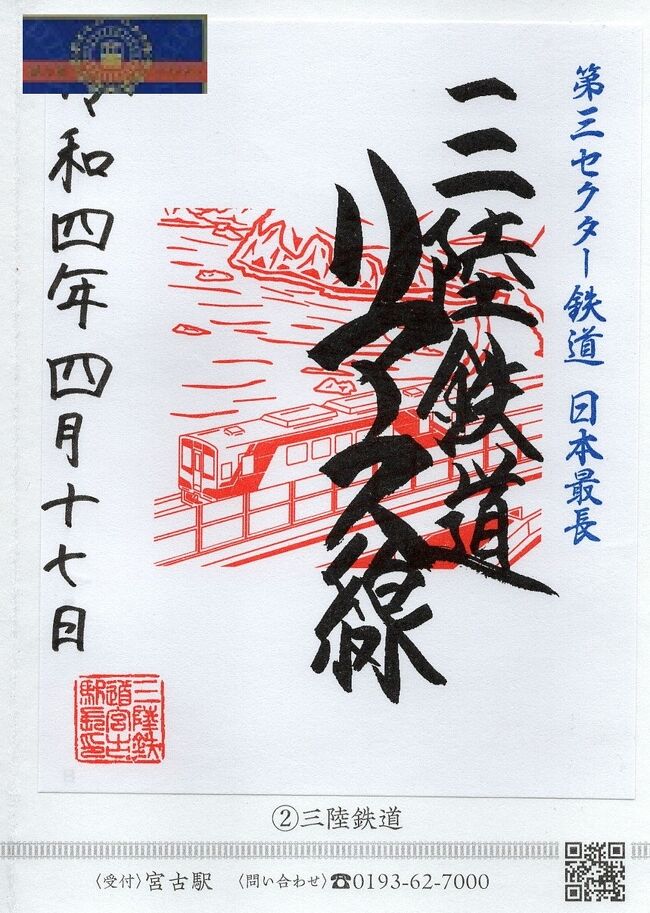 第三セクター鉄道 日本最長
三陸鉄道
リアス線
令和四年四月十七日
三陸鉄
道宮古
駅長印
②三陸鉄道
〈受付〉宮古駅 〈問い合わせ〉☎0193-62-7000